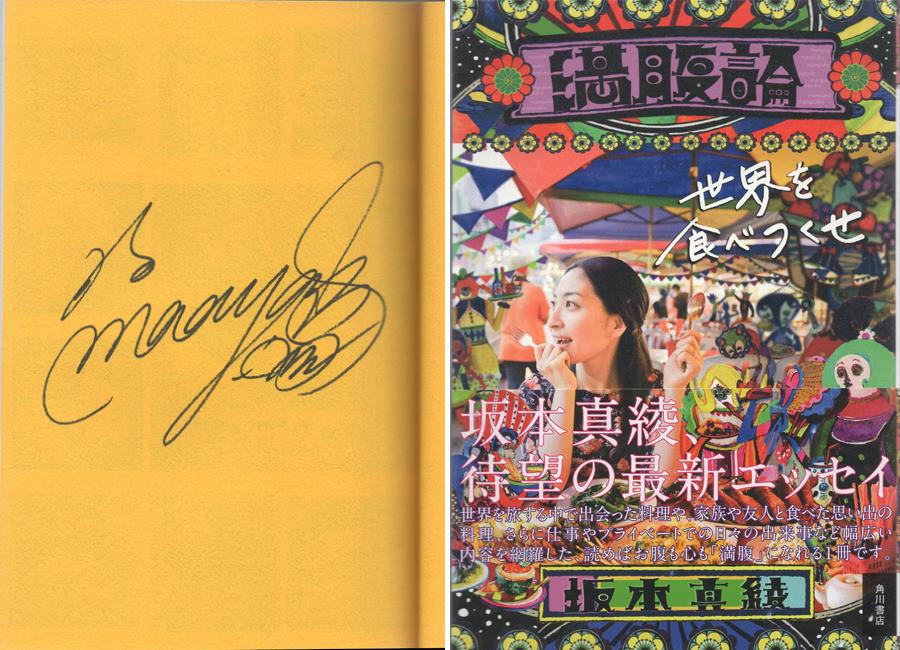 maaya
満腹論
世界を
食べつくせ
坂本真綾、
待望の最新エッセイ
世界を旅する中で出会った料理や、家族や友人と食べた思い出の
料理、さらに仕事やプライベートでの日々の出来事など幅広い
内容を網羅した、読めばお腹も心も「満腹」になれる1冊です。
坂本真綾
角川書店